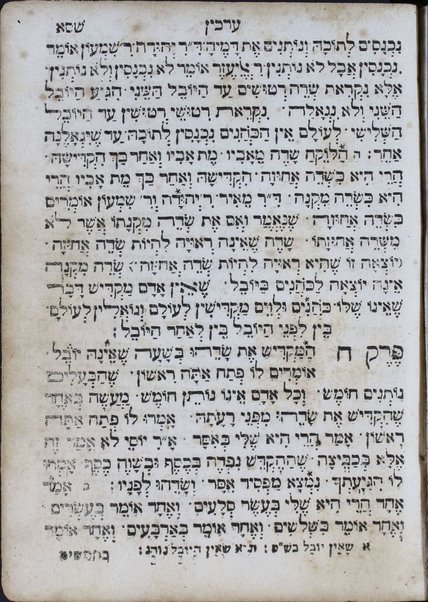 ערכין שסא
נכנסים לתוכה ונותנים את דמיה ד״ר יהודה ר׳ שמעון אומר
נכנסין אבל לא נותנין ר׳ אליעזר אומר לא נכנסין ולא נותנין
אלא נקראת שדה רטושים עד היובל השני הגיע היובל
השני ולא נגאלה נקראת רטושי רטושין עד היובל
השלישי לעולם אין הכהנים נכנסין לתוכה עד שיגאלנה
אחר: ה הלוקח שדה מאביו מת אביו ואחר כך הקדישה
הרי היא כשדה אחוזה הקדישה ואחר כך מת אביו הרי
היא כשדה מקנה ד״ר מאיר ר׳ יהודה ור׳ שמעון אומרים
כשדה אחוזה שנאמר ואם את שדה מקנתו אשר לא
משדה אחוזתו שדה שאינה ראויה להיות שדה אחוזה
יוצאה זו שהיא ראויה להיות שדה אחוזה שדה מקנה
אינה יוצאה לכהנים ביובל שאין אדם מקדיש דבר
שאינו שלו כהנים ולוים מקדישין לעולם וגואלין לעולם
בין לפני היובל בין לאחר היובל:
פרק ח המקדיש את שדהו בשעה שאינה יובל
אומרים לו פתח אתה ראשון שהבעלים
נותנים חומש וכל אדם אינו נותן חומש מעשה באחד
שהקדיש את שדהו מפני רעתה אמרו לו פתח אתה
ראשון אמר הרי היא שלי באסר א״ר יוסי לא אמר זה
אלא בכביצה שההקדש נפדה בכסף ובשוה כסף אמר
לו הגיעתך נמצא מפסיד אסר ושדהו לפניו: ב אמר
אחד הרי היא שלי בעשר סלעים ואחד אומר בעשרים
ואחד אומר בשלשים ואחד אומר בארבעים ואחד אומר
א שאין יובל בש״ס: ת״א שאין היובל נוהג: בחמשים